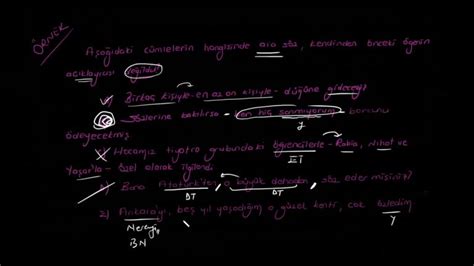 ÖRNEK
Aşağıdaki cümlelerin hangisinde ara söz, kendinden önceki ögenin
açıklayıcısı değildir?
Birkaç kişiyle-en az on kişiyle-düğüne gideceğiz
sözlerine bakılırsa - ben hiç sanmıyorum - borcunu
y
ödeyecekmiş
Hocamız tiyatro grubundaki öğrencilerle - Rabia, Nihat ve
Yaşar'la - özel olarak ilgilendi
Bana Atatürk'ten, o büyük dahiden, söz eder misiniz?
DT DT
Ankara'yı, beş yıl yaşadığım o güzel kenti, çok özledim
Nereyi Y
BN